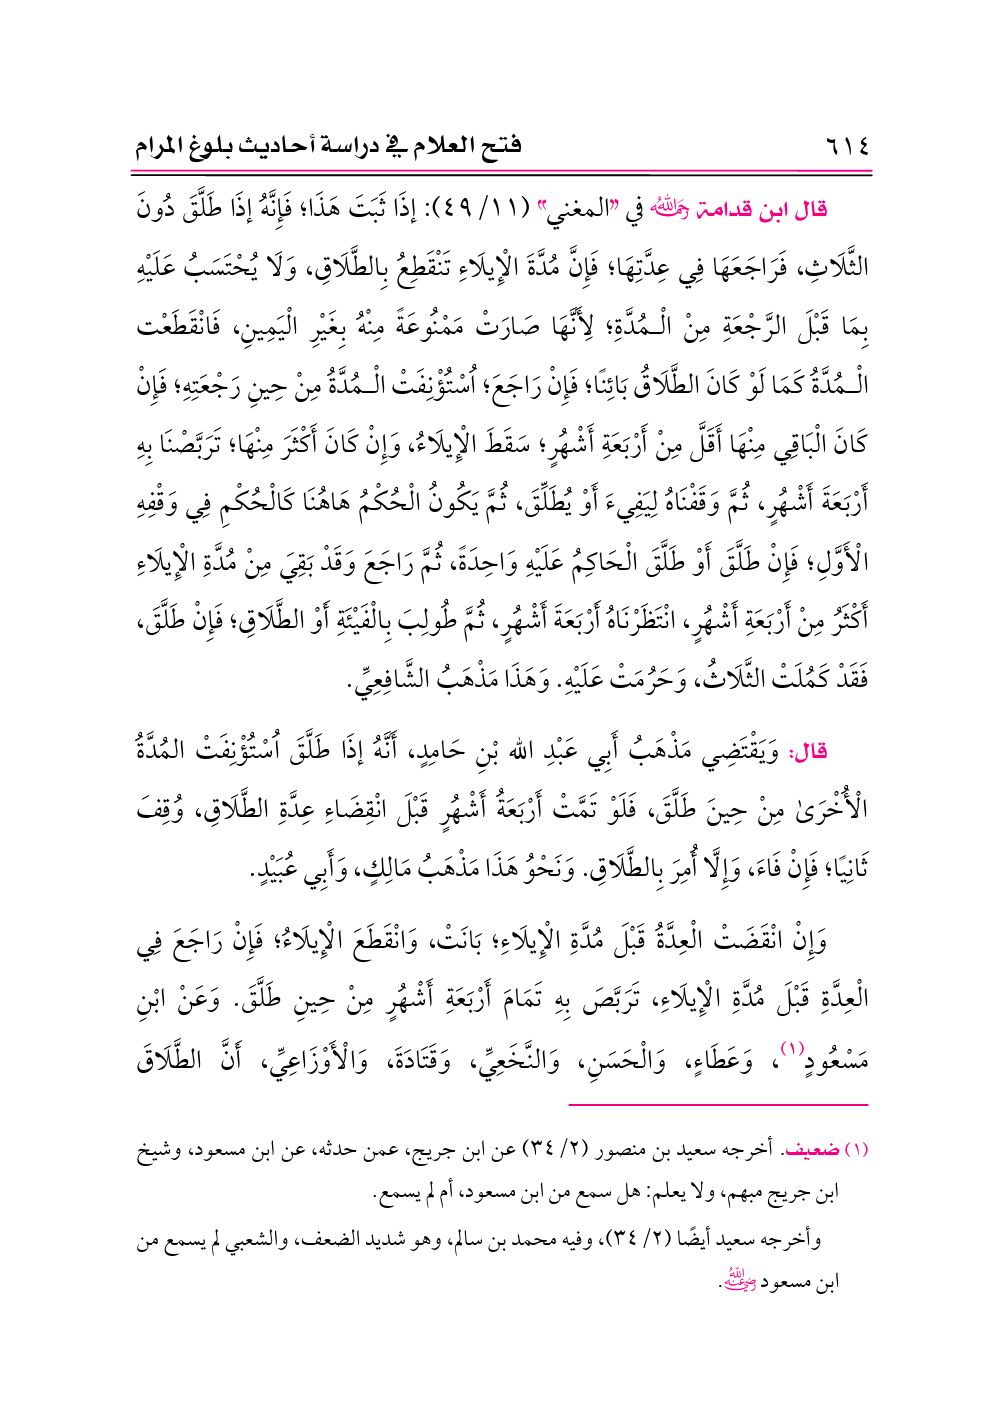 ٦١٤ فتح العلام في دراسة أحاديث بلوغ المرام
قال ابن قدامة رحمه الله في "المغني" (١١/ ٤٩): إذَا ثَبَتَ هَذَا؛ فَإِنَّهُ إذَا طَلَّقَ دُونَ
الثَّلَاثِ، فَرَاجَعَهَا فِي عِدَّتِهَا؛ فَإِنَّ مُدَّةَ الْإِيلَاءِ تَنْقَطِعُ بِالطَّلَاقِ، وَلَا يُحْتَسَبُ عَلَيْهِ
بِمَا قَبْلَ الرَّجْعَةِ مِنْ الْـمُدَّةِ؛ لِأَنَّهَا صَارَتْ مَمْنُوعَةً مِنْهُ بِغَيْرِ الْيَمِينِ، فَانْقَطَعْت
الْـمُدَّةُ كَمَا لَوْ كَانَ الطَّلَاقُ بَائِنًا؛ فَإِنْ رَاجَعَ؛ اُسْتُؤْنِفَتْ الْـمُدَّةُ مِنْ حِينِ رَجْعَتِهِ؛ فَإِنْ
كَانَ الْبَاقِي مِنْهَا أَقَلَّ مِنْ أَرْبَعَةِ أَشْهُرٍ؛ سَقَطَ الْإِيلَاءُ، وَإِنْ كَانَ أَكْثَرَ مِنْهَا؛ تَرَبَّصْنَا بِهِ
أَرْبَعَةَ أَشْهُرٍ، ثُمَّ وَقَفْنَاهُ لِيَفِيءَ أَوْ يُطَلِّقَ، ثُمَّ يَكُونُ الْحُكْمُ هَاهُنَا كَالْحُكْمِ فِي وَقْفِهِ
الْأَوَّلِ؛ فَإِنْ طَلَّقَ أَوْ طَلَّقَ الْحَاكِمُ عَلَيْهِ وَاحِدَةً، ثُمَّ رَاجَعَ وَقَدْ بَقِيَ مِنْ مُدَّةِ الْإِيلَاءِ
أَكْثَرُ مِنْ أَرْبَعَةِ أَشْهُرٍ، انْتَظَرْنَاهُ أَرْبَعَةَ أَشْهُرٍ، ثُمَّ طُولِبَ بِالْفَيْئَةِ أَوْ الطَّلَاقِ؛ فَإِنْ طَلَّقَ،
فَقَدْ كَمُلَتْ الثَّلَاثُ، وَحَرُمَتْ عَلَيْهِ. وَهَذَا مَذْهَبُ الشَّافِعِيِّ.
قال: وَيَقْتَضِي مَذْهَبُ أَبِي عَبْدِ الله بْنِ حَامِدٍ، أَنَّهُ إذَا طَلَّقَ اُسْتُؤْنِفَتْ المُدَّةُ
الْأُخْرَىٰ مِنْ حِينَ طَلَّقَ، فَلَوْ تَمَّتْ أَرْبَعَةُ أَشْهُرٍ قَبْلَ انْقِضَاءِ عِدَّةِ الطَّلَاقِ، وُقِفَ
ثَانِيًا؛ فَإِنْ فَاءَ، وَإِلَّا أُمِرَ بِالطَّلَاقِ. وَنَحْوُ هَذَا مَذْهَبُ مَالِكٍ، وَأَبِي عُبَيْدٍ.
وَإِنْ انْقَضَتْ الْعِدَّةُ قَبْلَ مُدَّةِ الْإِيلَاءِ؛ بَانَتْ، وَانْقَطَعَ الْإِيلَاءُ؛ فَإِنْ رَاجَعَ فِي
الْعِدَّةِ قَبْلَ مُدَّةِ الْإِيلَاءِ، تَرَبَّصَ بِهِ تَمَامَ أَرْبَعَةِ أَشْهُرٍ مِنْ حِينِ طَلَّقَ. وَعَنْ ابْنِ
مَسْعُودٍ(١)، وَعَطَاءٍ، وَالْحَسَنِ، وَالنَّخَعِيِّ، وَقَتَادَةَ، وَالْأَوْزَاعِيِّ، أَنَّ الطَّلَاقَ
(١) ضعيف. أخرجه سعيد بن منصور (٢/ ٣٤) عن ابن جريج، عمن حدثه، عن ابن مسعود، وشيخ
ابن جريج مبهم، ولا يعلم: هل سمع من ابن مسعود، أم لم يسمع.
وأخرجه سعيد أيضًا (٢/ ٣٤)، وفيه محمد بن سالم، وهو شديد الضعف، والشعبي لم يسمع من
ابن مسعود رضي الله عنه.